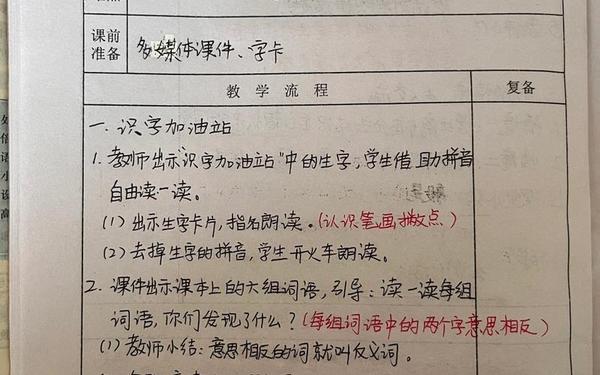 课前
准备
多媒体课件、字卡
教学流程
复备
一.识字加油站
1.教师出示"识字加油站"中的生字,学生借助拼音
自由读一读。
(1)出示生字卡片,指名朗读。(认识笔画撇点)
(2)去掉生字的拼音,学生开火车朗读。
2.课件出示课本上的六组词语,引导:读一读每组
词语,你们发现了什么?(每组词语中的两个字意思相反)
(1)教师小结:意思相反的词就叫反义词。